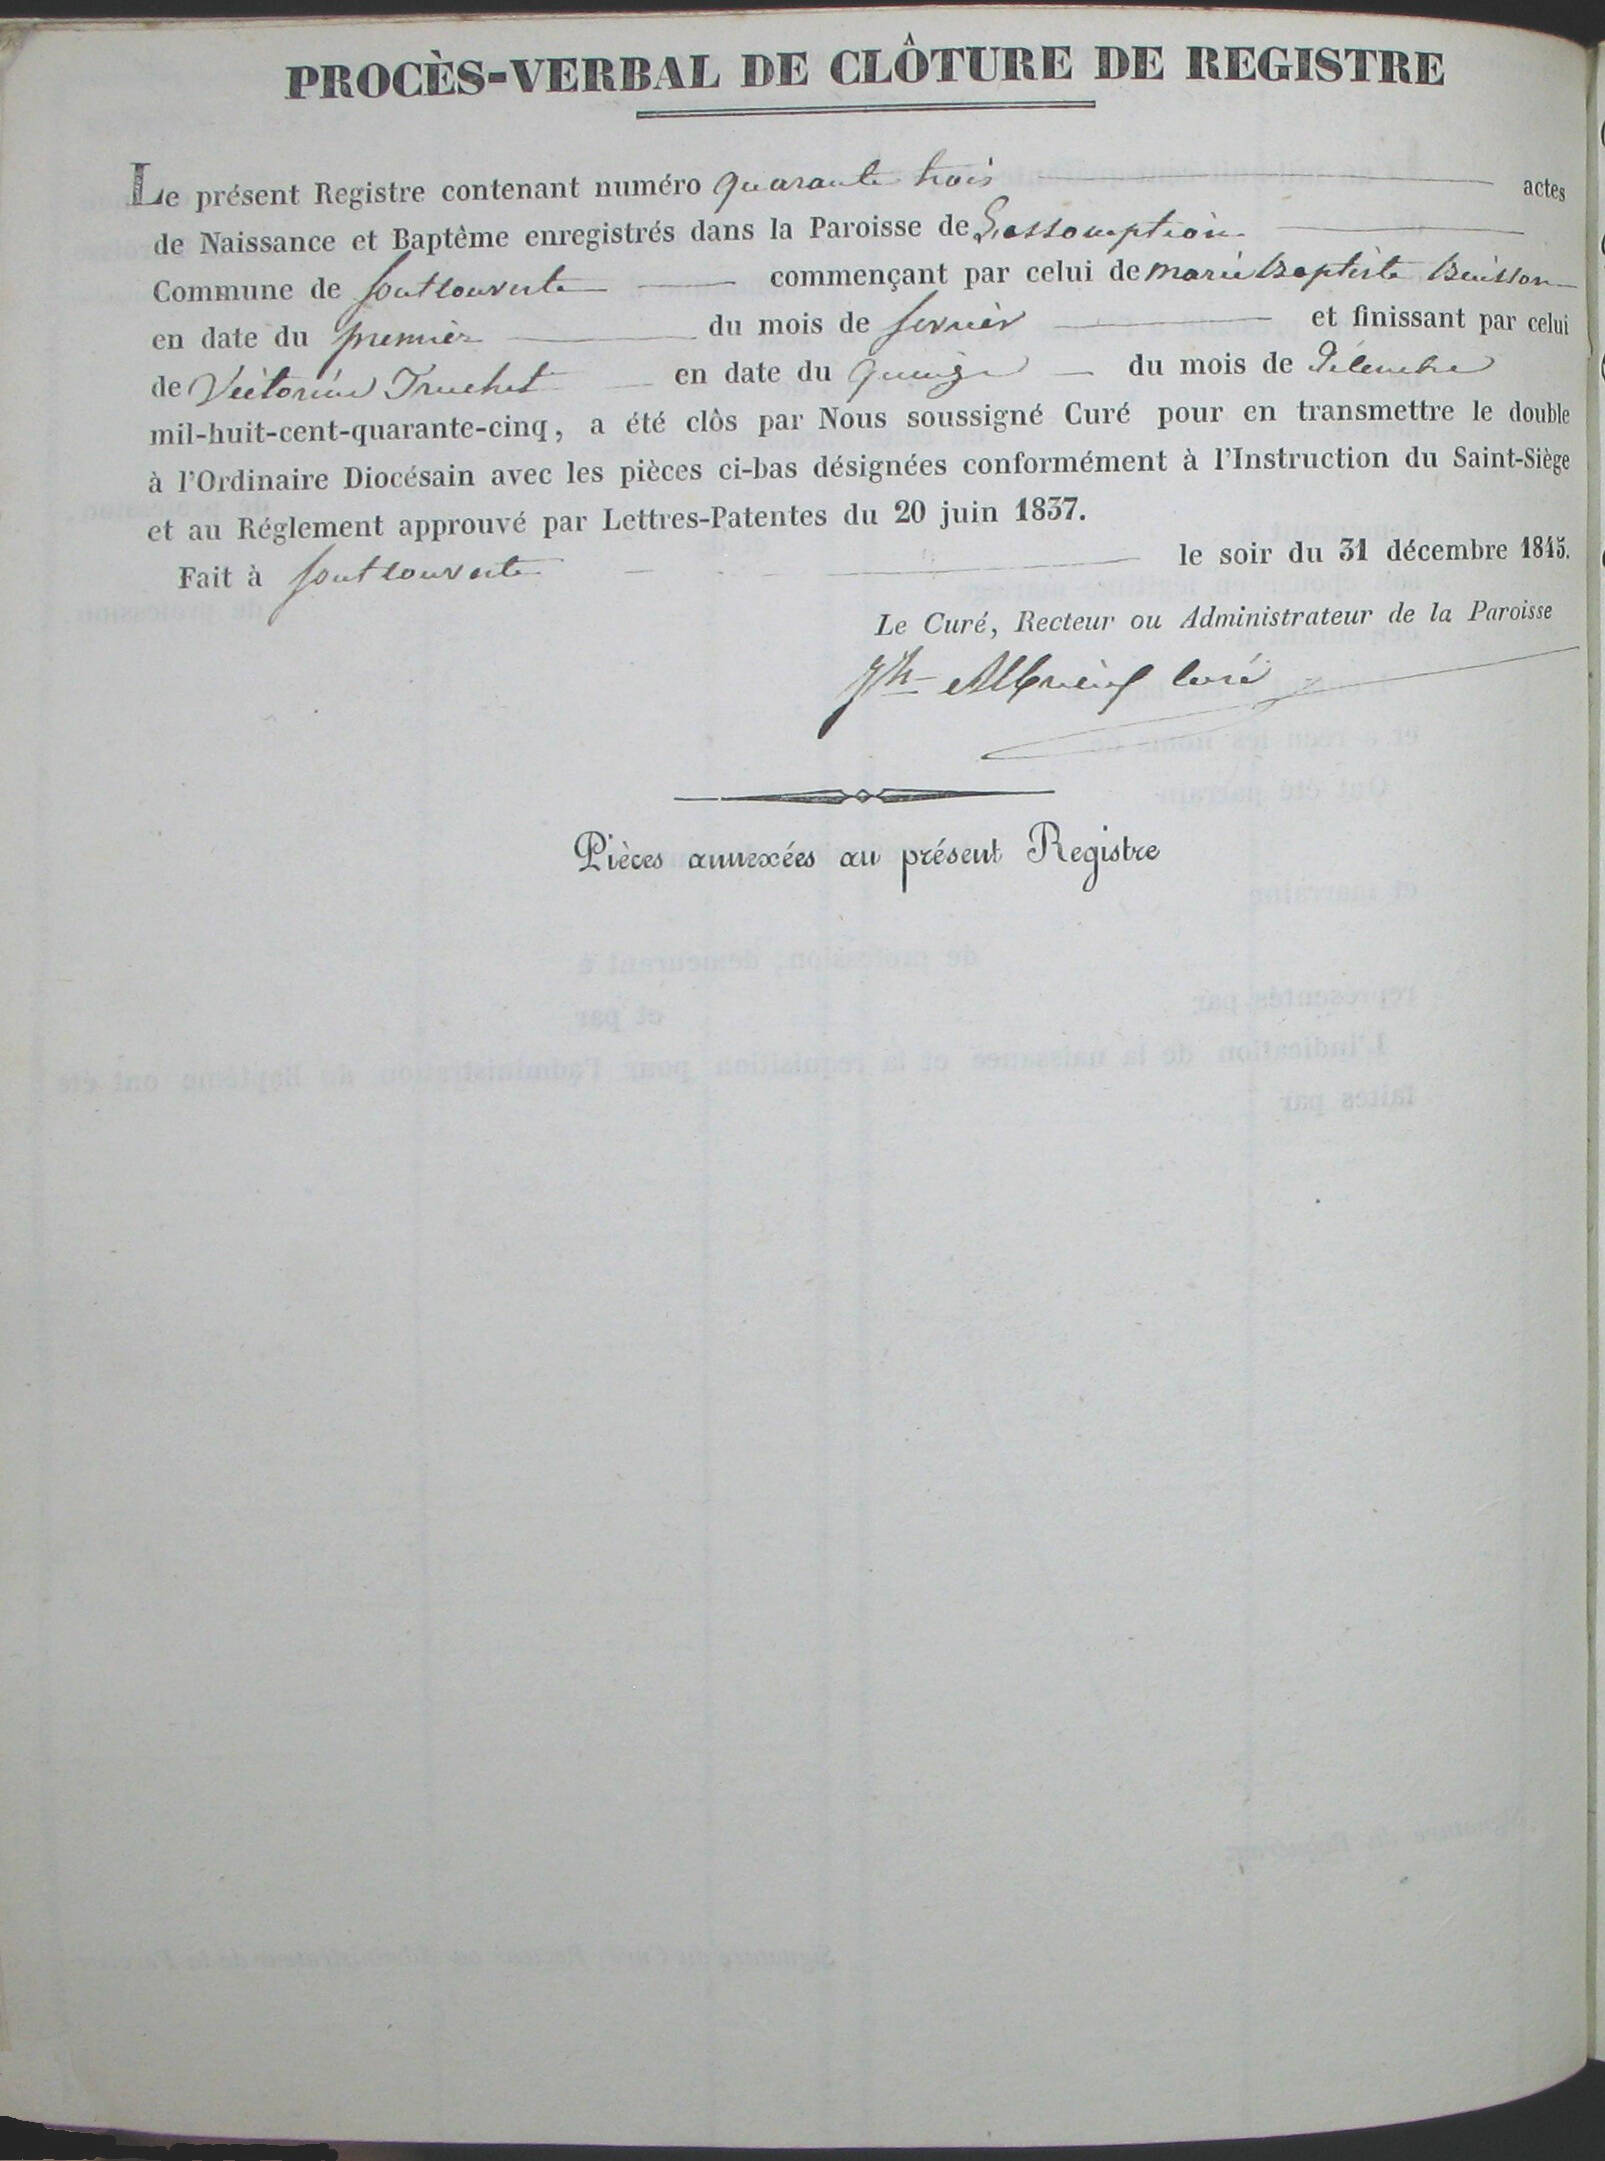 PROCÈS-VERBAL DE CLÔTURE DE REGISTRE
Le présent Registre contenant numéro quarante trois actes
de Naissance et Baptême enregistrés dans la Paroisse de L'assomption
Commune de fontcouverte commençant par celui de marie Baptiste Buisson
en date du premier du mois de fevrier et finissant par celui
de Victorine Truchet en date du quinze du mois de Décembre
mil-huit-cent-quarante-cinq, a été clôs par Nous soussigné Curé pour en transmettre le double
à l'Ordinaire Diocésain avec les pièces ci-bas désignées conformément à l'Instruction du Saint-Siège
et au Réglement approuvé par Lettres-Patentes du 20 juin 1837.
Fait à fontcouverte le soir du 31 décembre 1845.
Le Curé, Recteur ou Administrateur de la Paroisse
Jh curé
Pièces annexées au présent Registre